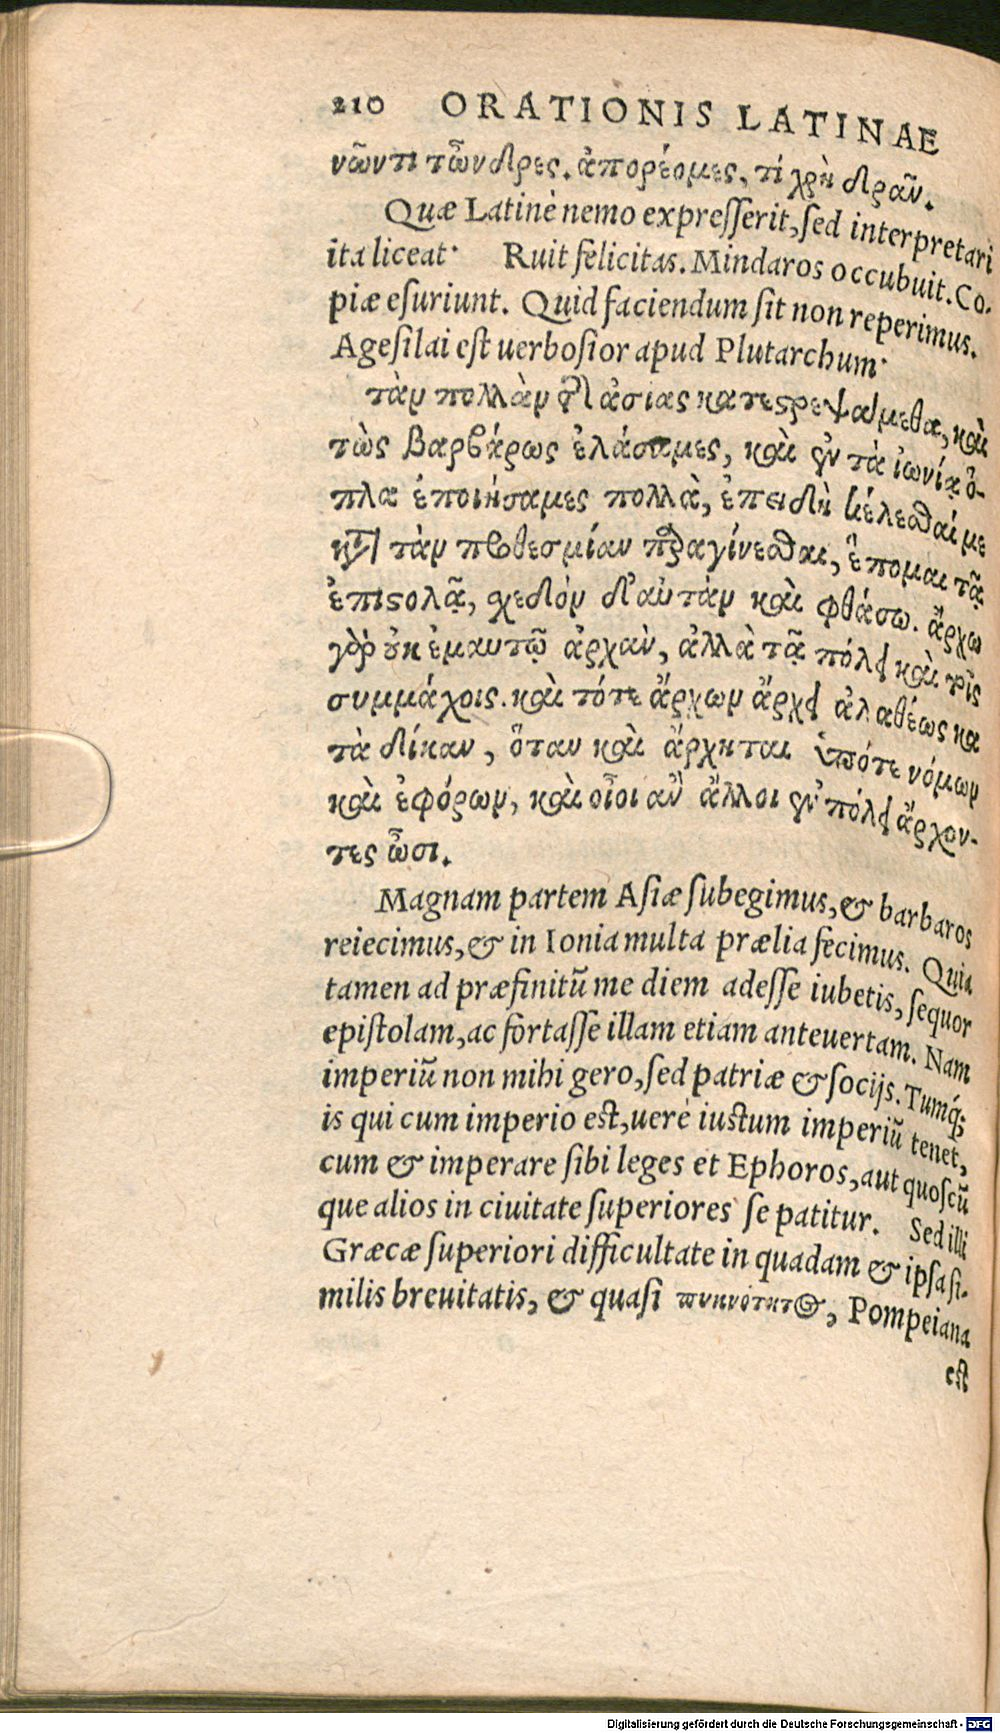 210 ORATIONIS LATINAE
νῶντι τὦνδρες. ἀπορέομες, τί χρὴ δρᾶν.
Quæ Latinè nemo expresserit, sed interpretari
ita liceat· Ruit felicitas. Mindaros occubuit. Co-
piæ esuriunt. Quid faciendum sit non reperimus.
Agesilai est uerbosior apud Plutarchum·
τὰν πολλὰν τῆς ἀσίας κατεστρεψάμεθα, καὶ
τὼς βαρβάρως ἐλάσαμες, καὶ ἐν τᾷ ἰωνίᾳ ὅ-
πλα ἐποιήσαμες πολλὰ, ἐπειδὴ κέλεσθαί με
κατὰ τὰν προθεσμίαν παραγίνεσθαι, ἕπομαι τᾷ
ἐπιστολᾷ, σχεδὸν δ'αὐτὰν καὶ φθάσω. ἄρχω
γὰρ οὐκ ἐμαυτῷ ἀρχὰν, ἀλλὰ τᾷ πόλει καὶ τοῖς
συμμάχοις. καὶ τότε ἄρχων ἄρχει ἀλαθέως κα
τὰ δίκαν, ὅταν καὶ ἄρχηται ὑπότε νόμων
καὶ ἐφόρων, καὶ οἷοι ἂν ἄλλοι ἐν πόλει ἄρχον-
τες ὦσι.
Magnam partem Asiæ subegimus, & barbaros
reiecimus, & in Ionia multa prælia fecimus. Quia
tamen ad præfinitũ me diem adesse iubetis, sequor
epistolam, ac fortasse illam etiam anteuertam. Nam
imperiũ non mihi gero, sed patriæ & socijs. Tumq́;
is qui cum imperio est, uerè iustum imperiũ tenet,
cum & imperare sibi leges et Ephoros, aut quoscũ
que alios in ciuitate superiores se patitur. Sed illi
Græcæ superiori difficultate in quadam & ipsa si-
milis breuitatis, & quasi πυκνότητος, Pompeiana
est
Digitalisierung gefördert durch die Deutsche Forschungsgemeinschaft - DFG